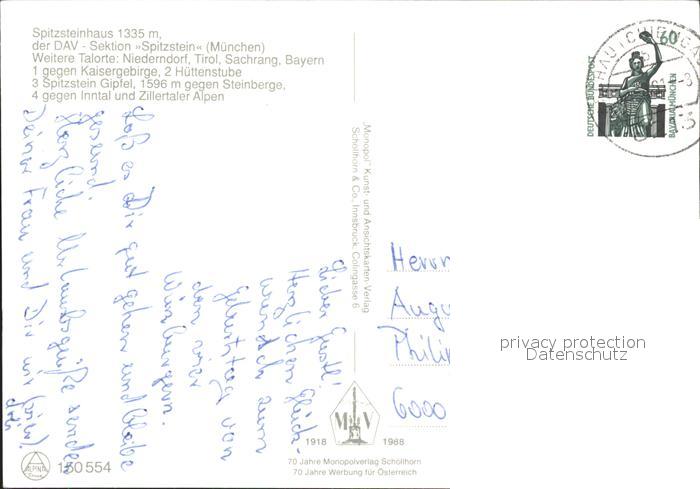 Spitzsteinhaus 1335 m,
der DAV - Sektion »Spitzstein« (München)
Weitere Talorte: Niederndorf, Tirol, Sachrang, Bayern
1 gegen Kaisergebirge, 2 Hüttenstube
3 Spitzstein Gipfel, 1596 m gegen Steinberge,
4 gegen Inntal und Zillertaler Alpen
Lieber Gustl!
Herzlichen Glück-
wunsch zum
Geburtstag von
den vier
Würzburgern.
Laß es Dir gut gehen und bleibe
gesund!
Herzliche Urlaubsgrüße senden
Deiner Frau und Dir wir
„Monopol" Kunst- und Ansichtskarten-Verlag
Schöllhorn & Co., Innsbruck, Colingasse 6
60
DEUTSCHE BUNDESPOST
BAVARIA MÜNCHEN
Herrn
Augu
Philip
6000
privacy protection
Datenschutz
M V
1918 1988
70 Jahre Monopolverlag Schöllhorn
70 Jahre Werbung für Österreich
ALPINA
150 554